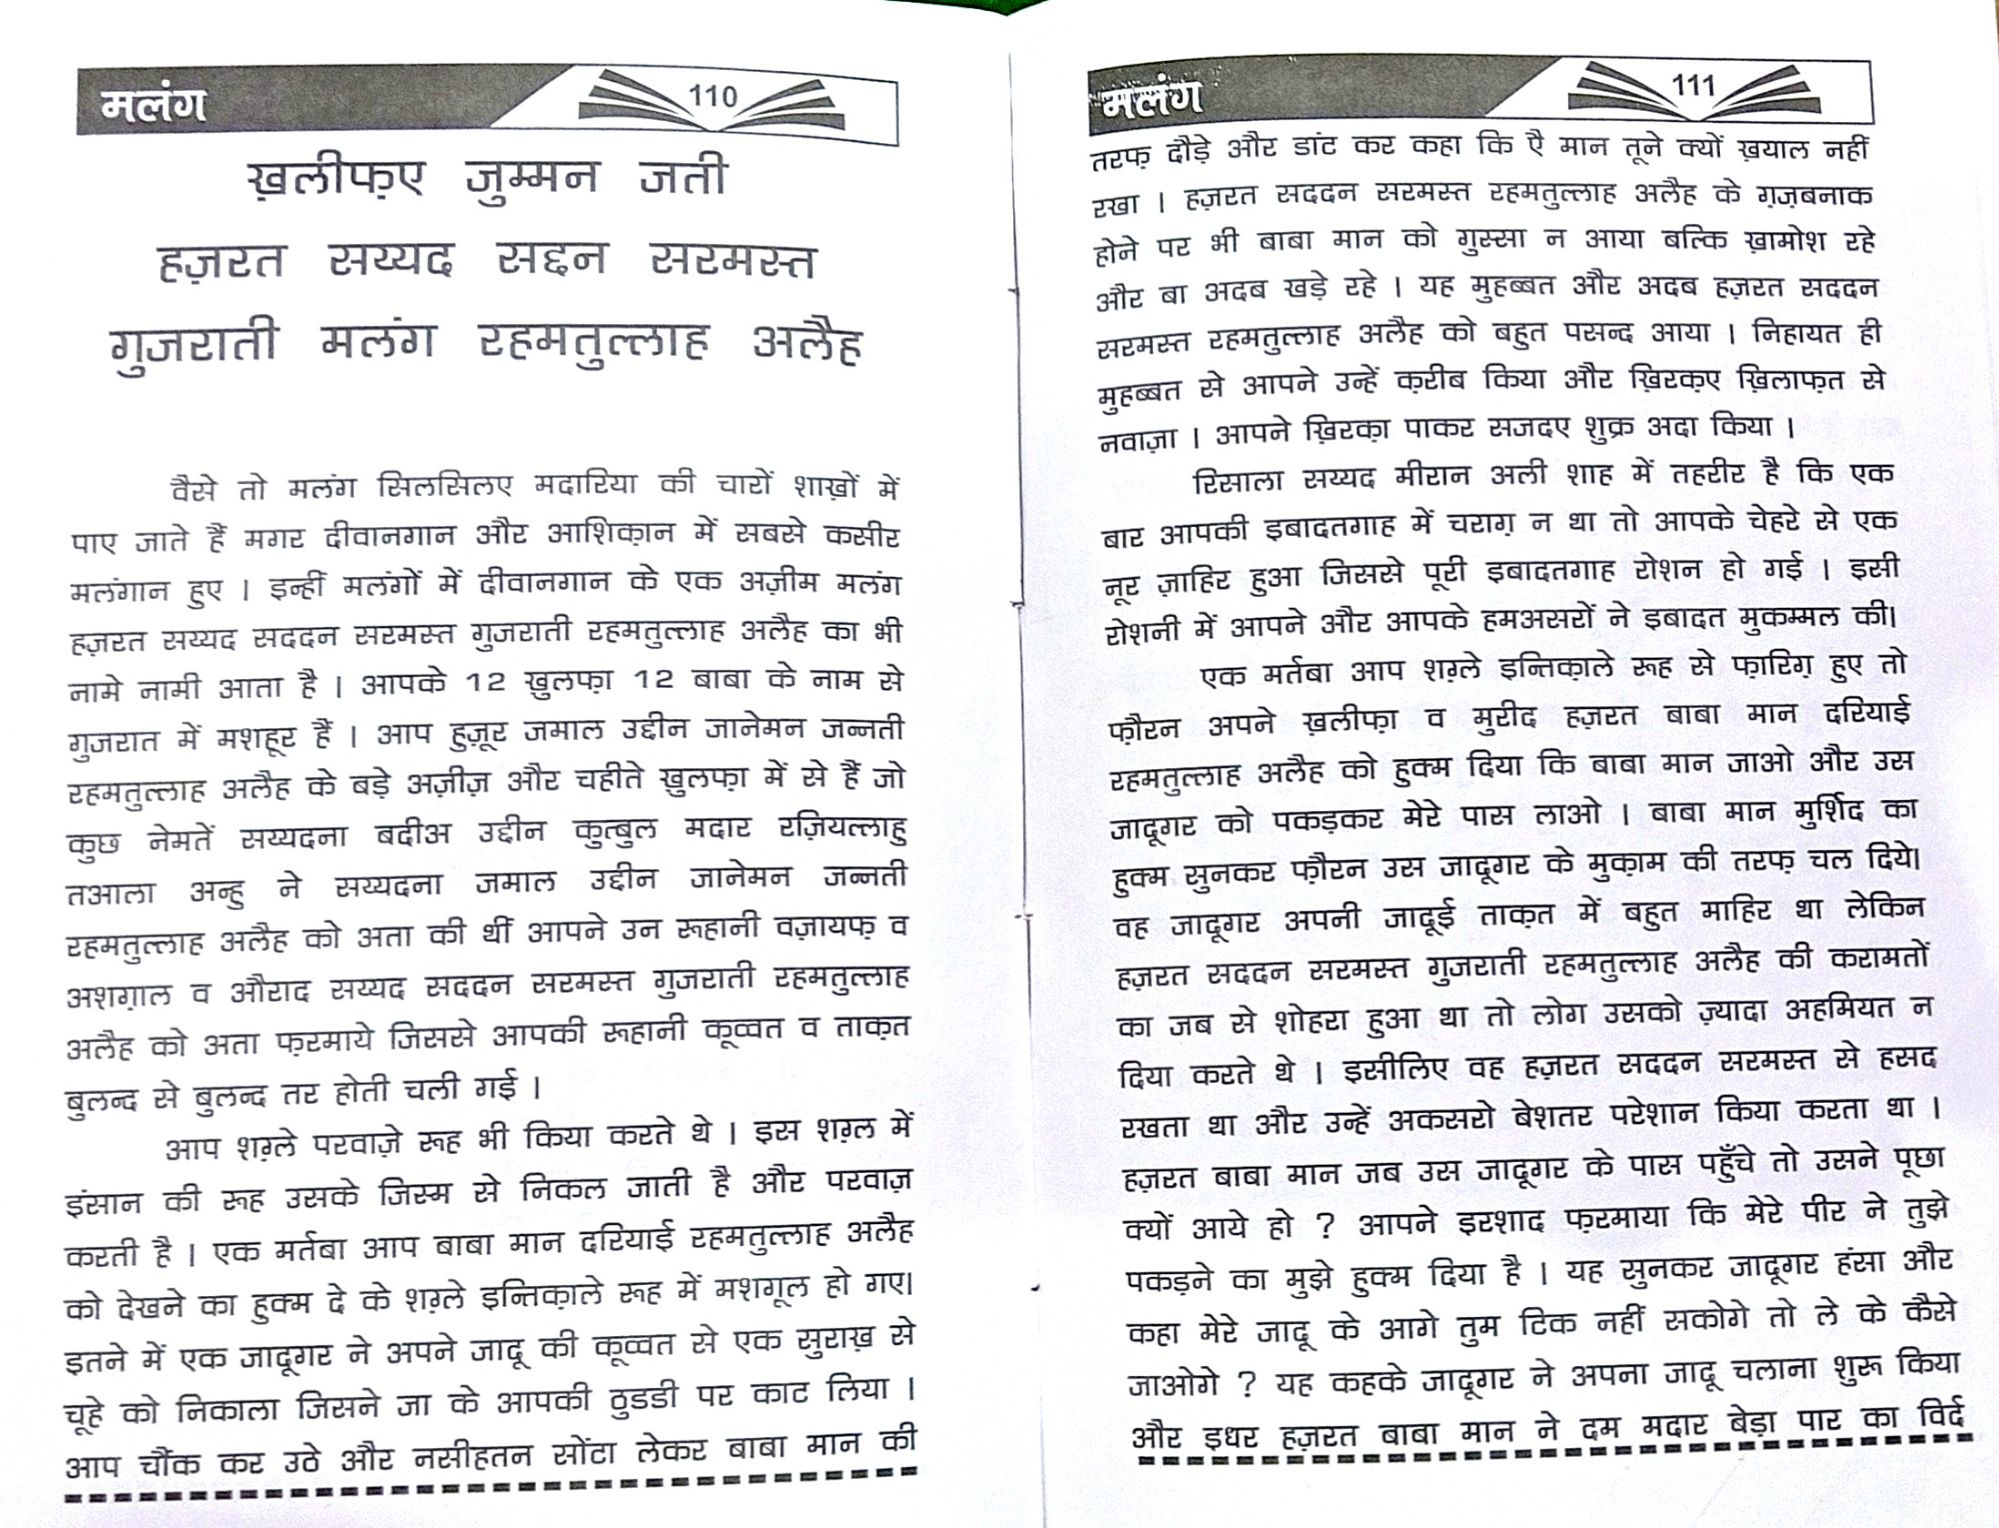 मलंग
110
ख़लीफ़ए जुम्मन जती
हज़रत सय्यद सद्दन सरमस्त
गुजराती मलंग रहमतुल्लाह अलैह
वैसे तो मलंग सिलसिलए मदारिया की चारों शाख़ों में
पाए जाते हैं मगर दीवानगान और आशिक़ान में सबसे कसीर
मलंगान हुए । इन्हीं मलंगों में दीवानगान के एक अज़ीम मलंग
हज़रत सय्यद सददन सरमस्त गुजराती रहमतुल्लाह अलैह का भी
नामे नामी आता है । आपके 12 ख़ुलफ़ा 12 बाबा के नाम से
गुजरात में मशहूर हैं । आप हुज़ूर जमाल उद्दीन जानेमन जन्नती
रहमतुल्लाह अलैह के बड़े अज़ीज़ और चहीते ख़ुलफ़ा में से हैं जो
कुछ नेमतें सय्यदना बदीअ उद्दीन कुत्बुल मदार रज़ियल्लाहु
तआला अन्हु ने सय्यदना जमाल उद्दीन जानेमन जन्नती
रहमतुल्लाह अलैह को अता की थीं आपने उन रूहानी वज़ायफ़ व
अशग़ाल व औराद सय्यद सददन सरमस्त गुजराती रहमतुल्लाह
अलैह को अता फ़रमाये जिससे आपकी रूहानी कूव्वत व ताक़त
बुलन्द से बुलन्द तर होती चली गई ।
आप शग़्ले परवाज़े रूह भी किया करते थे । इस शग़्ल में
इंसान की रूह उसके जिस्म से निकल जाती है और परवाज़
करती है । एक मर्तबा आप बाबा मान दरियाई रहमतुल्लाह अलैह
को देखने का हुक्म दे के शग़्ले इन्तिक़ाले रूह में मशगूल हो गए।
इतने में एक जादूगर ने अपने जादू की कूव्वत से एक सुराख़ से
चूहे को निकाला जिसने जा के आपकी ठुडडी पर काट लिया ।
आप चौंक कर उठे और नसीहतन सोंटा लेकर बाबा मान की
मलंग
111
तरफ़ दौड़े और डांट कर कहा कि ऐ मान तूने क्यों ख़याल नहीं
रखा । हज़रत सददन सरमस्त रहमतुल्लाह अलैह के ग़ज़बनाक
होने पर भी बाबा मान को गुस्सा न आया बल्कि ख़ामोश रहे
और बा अदब खड़े रहे । यह मुहब्बत और अदब हज़रत सददन
सरमस्त रहमतुल्लाह अलैह को बहुत पसन्द आया । निहायत ही
मुहब्बत से आपने उन्हें क़रीब किया और ख़िरक़ए ख़िलाफ़त से
नवाज़ा । आपने ख़िरक़ा पाकर सजदए शुक्र अदा किया ।
रिसाला सय्यद मीरान अली शाह में तहरीर है कि एक
बार आपकी इबादतगाह में चराग़ न था तो आपके चेहरे से एक
नूर ज़ाहिर हुआ जिससे पूरी इबादतगाह रोशन हो गई । इसी
रोशनी में आपने और आपके हमअसरों ने इबादत मुकम्मल की।
एक मर्तबा आप शग़्ले इन्तिक़ाले रूह से फ़ारिग़ हुए तो
फ़ौरन अपने ख़लीफ़ा व मुरीद हज़रत बाबा मान दरियाई
रहमतुल्लाह अलैह को हुक्म दिया कि बाबा मान जाओ और उस
जादूगर को पकड़कर मेरे पास लाओ । बाबा मान मुर्शिद का
हुक्म सुनकर फ़ौरन उस जादूगर के मुक़ाम की तरफ़ चल दिये।
वह जादूगर अपनी जादूई ताक़त में बहुत माहिर था लेकिन
हज़रत सददन सरमस्त गुजराती रहमतुल्लाह अलैह की करामतों
का जब से शोहरा हुआ था तो लोग उसको ज़्यादा अहमियत न
दिया करते थे । इसीलिए वह हज़रत सददन सरमस्त से हसद
रखता था और उन्हें अकसरो बेशतर परेशान किया करता था ।
हज़रत बाबा मान जब उस जादूगर के पास पहुँचे तो उसने पूछा
क्यों आये हो ? आपने इरशाद फ़रमाया कि मेरे पीर ने तुझे
पकड़ने का मुझे हुक्म दिया है । यह सुनकर जादूगर हंसा और
कहा मेरे जादू के आगे तुम टिक नहीं सकोगे तो ले के कैसे
जाओगे ? यह कहके जादूगर ने अपना जादू चलाना शुरू किया
और इधर हज़रत बाबा मान ने दम मदार बेड़ा पार का विर्द